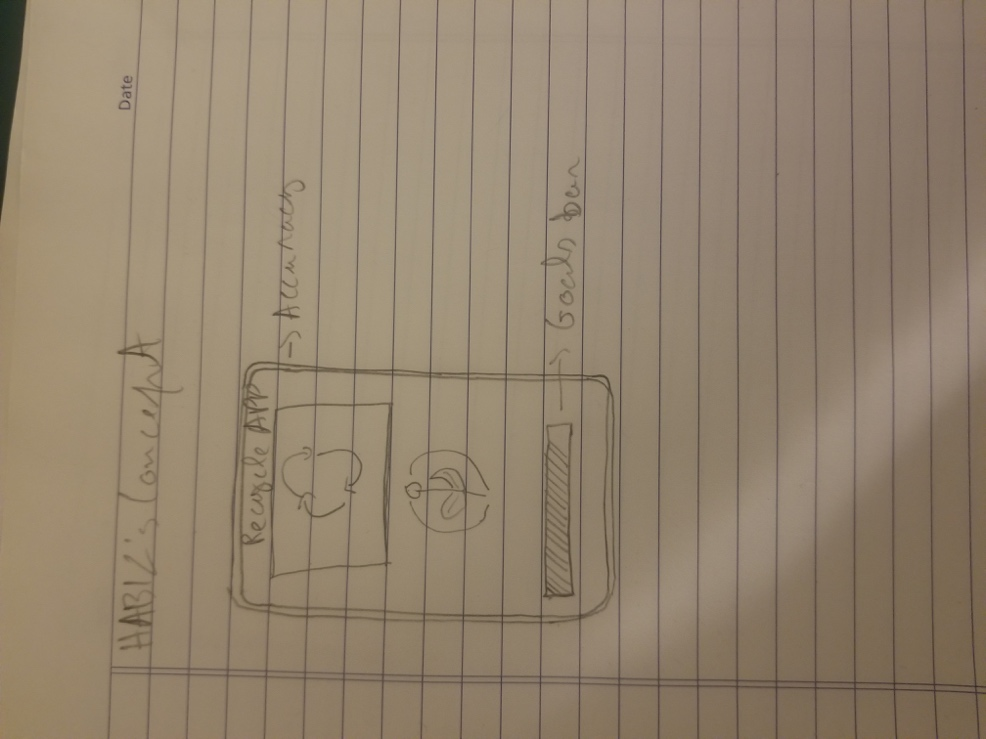 Date
HABIL's Concept
Recycle APP
→ Accuracy
→ Goals bar